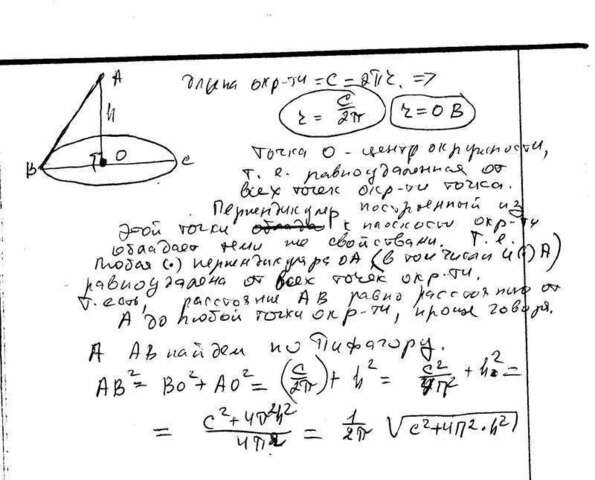 A
h
B
O
C
длина окр-ти = C = 2πr. =>
r = C/2π   r = OB
Точка O - центр окружности,
т.е. равноудаленная от
всех точек окр-ти точка.
Перпендикуляр построенный из
этой точки к плоскости окр-ти
обладает теми же свойствами. Т.е.
любая (•) перпендикуляра OA (в том числе и (•) A)
равноудалена от всех точек окр-ти.
Т.есть, расстояние AB равно расстоянию от
A до любой точки окр-ти, проще говоря.
А AB найдем по Пифагору.
AB² = BO² + AO² = (C/2π) + h² = C²/4π² + h² =
= C²+4π²h²/4π² = 1/2π √(C²+4π²·h²)